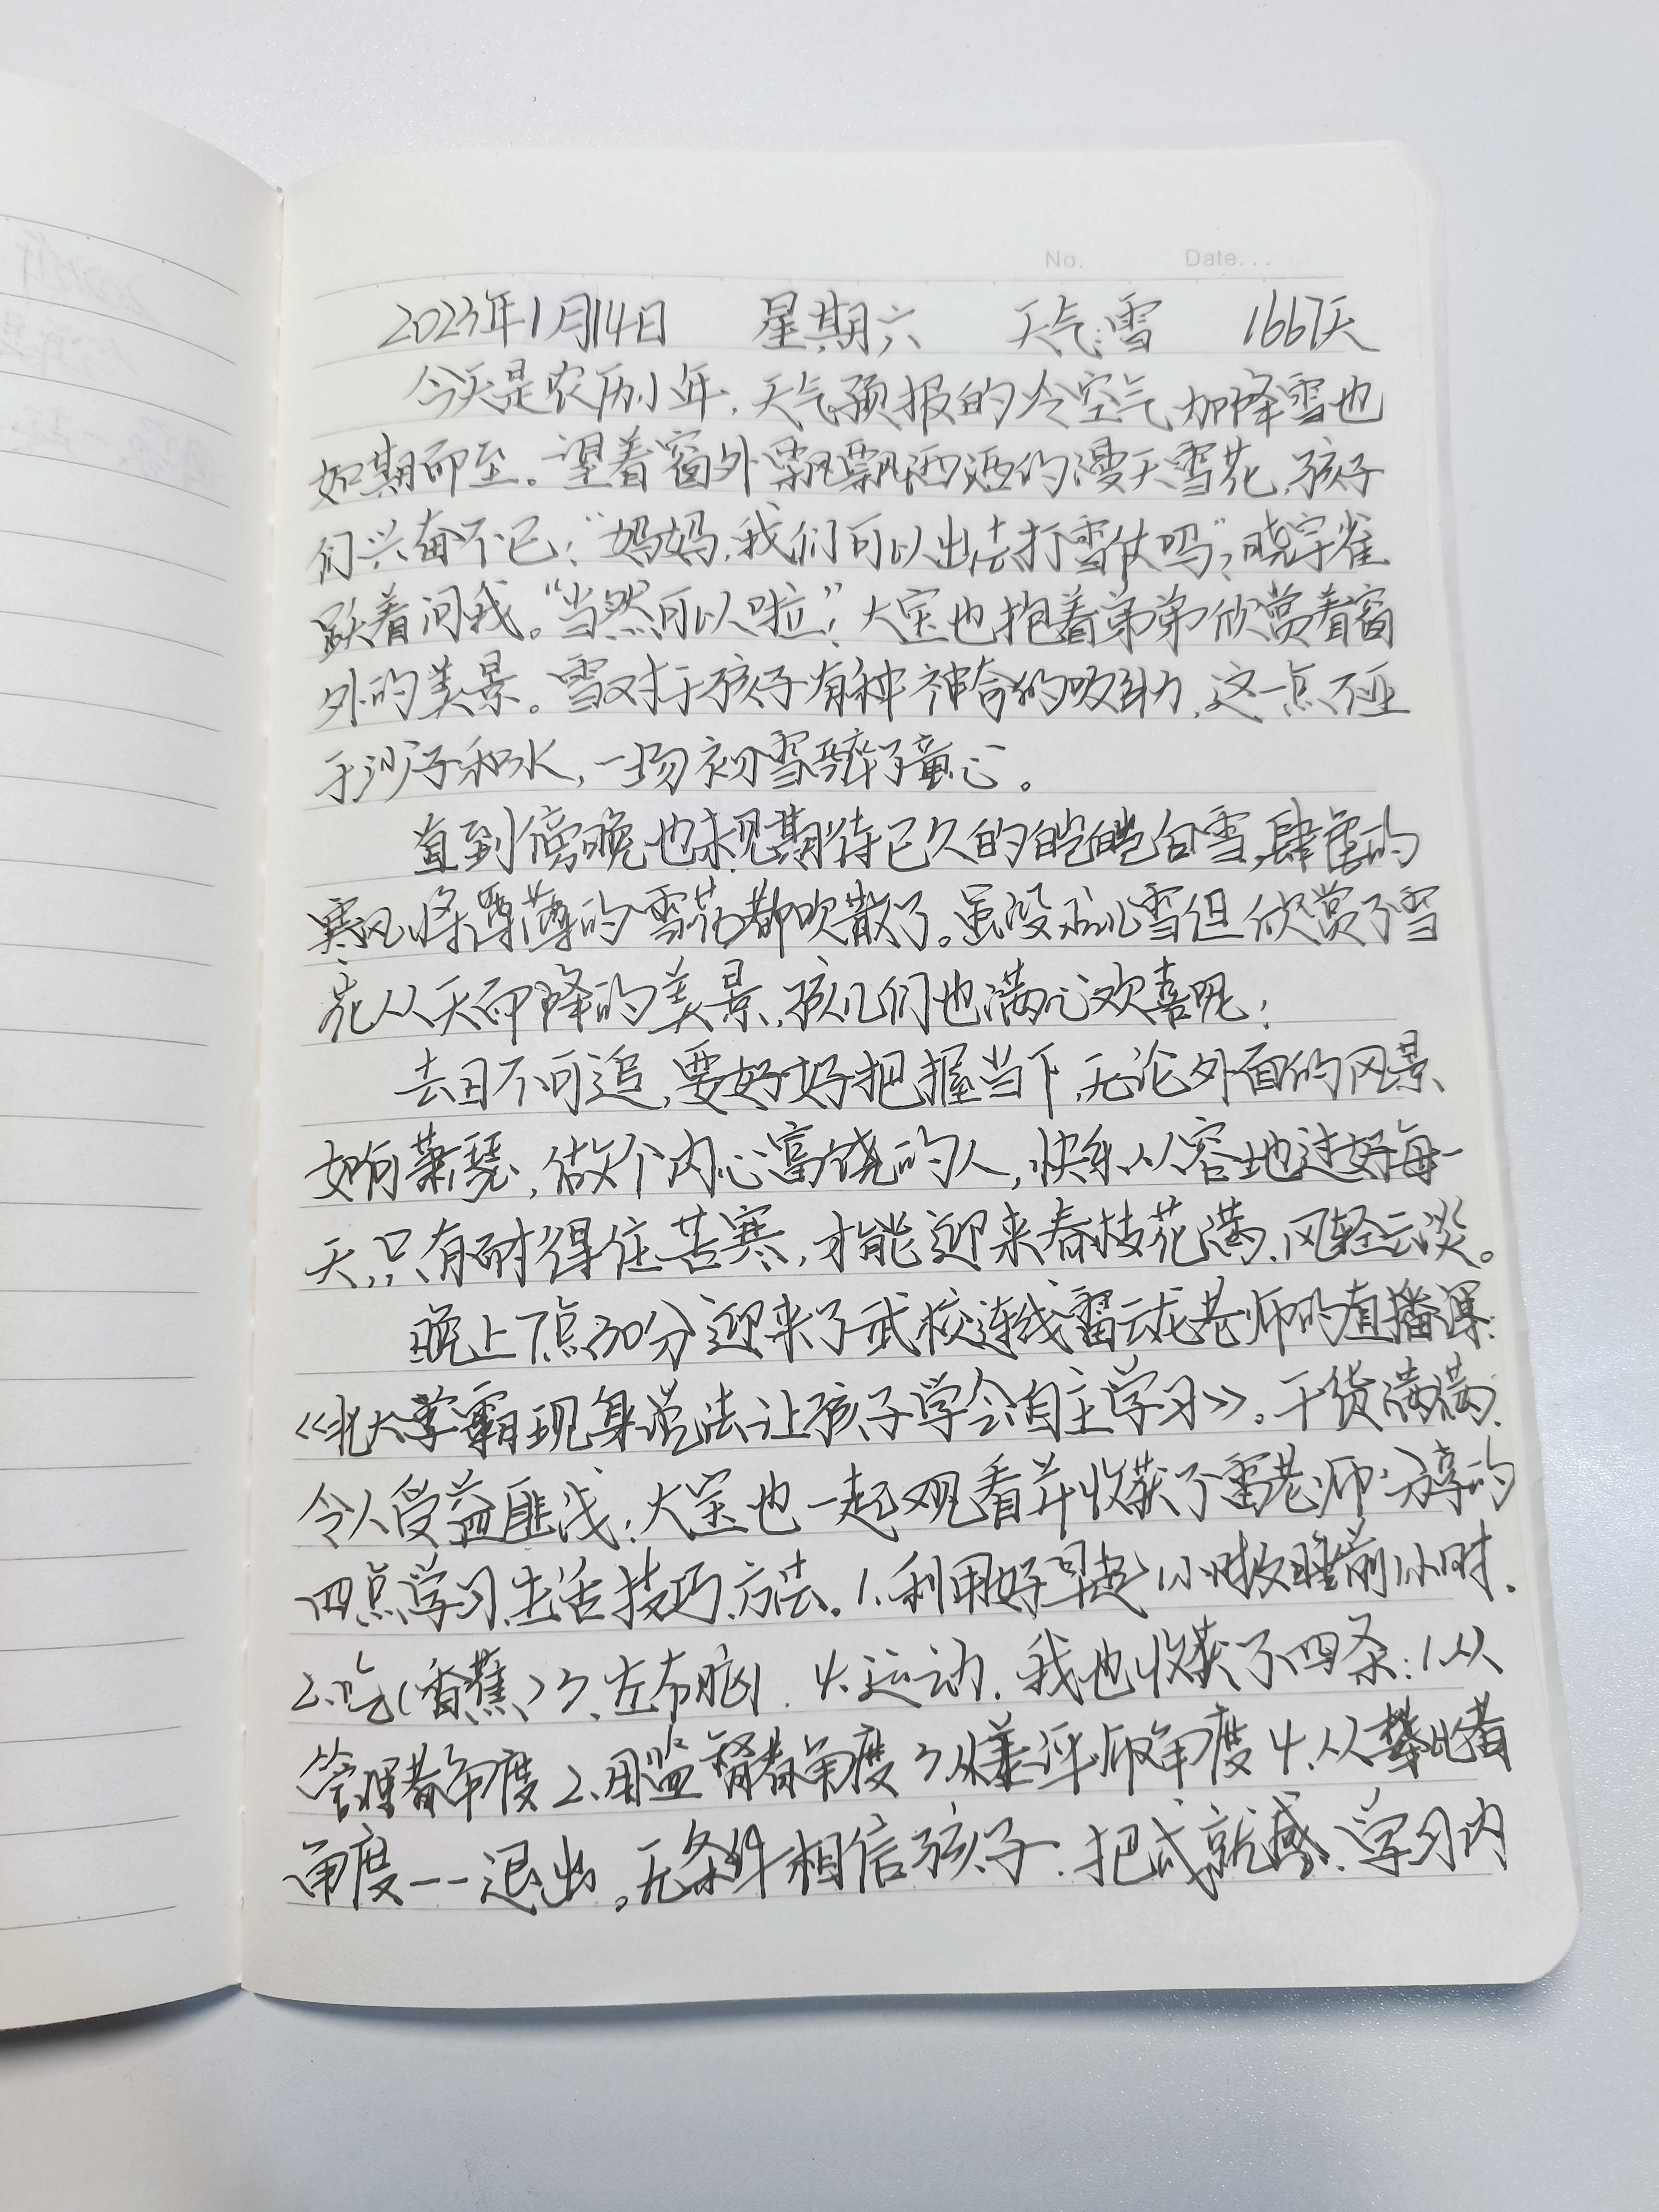 No. Date...
2023年1月14日 星期六 天气:雪 1667天
今天是农历小年，天气预报的冷空气加降雪也
如期而至。望着窗外飘飘洒洒的漫天雪花，孩子
们兴奋不已："妈妈，我们可以出去打雪仗吗"？晓宇雀
跃着问我。"当然可以啦！"大宝也抱着弟弟欣赏着窗
外的美景。雪对于孩子有种神奇的吸引力，这一点不亚
于沙子和水，一场初雪醉了童心。
直到傍晚也未见期待已久的皑皑白雪，肆虐的
寒风将薄薄的雪花都吹散了。虽没玩儿雪但欣赏了雪
花从天而降的美景，孩儿们也满心欢喜呢！
去日不可追，要好好把握当下，无论外面的风景
如何萧瑟，做个内心富饶的人，快乐从容地过好每一
天，只有耐得住苦寒，才能迎来春枝花满、风轻云淡。
晚上7点30分迎来了武校连线雷云龙老师的直播课：
《北大学霸现身说法让孩子学会自主学习》。干货满满，
令人受益匪浅；大宝也一起观看并收获了雷老师分享的
四点学习生活技巧、方法。1.利用好早起1小时及睡前1小时．
2.吃(香蕉)3、左右脑． 4.运动．我也收获了四条：1从
管理者角度2.用监督者角度3从差评师角度4.从攀比者
角度--退出。无条件相信孩子．把成就感、学习内